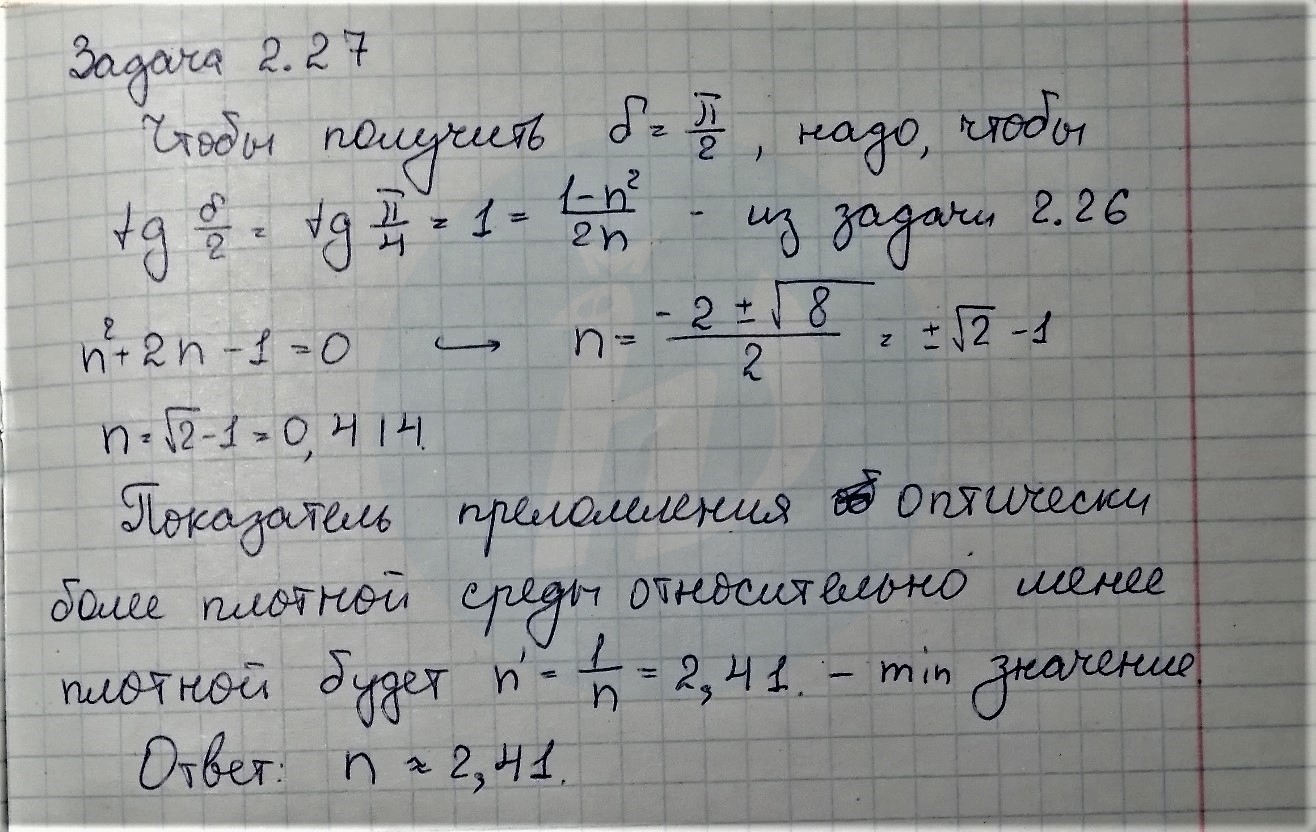 Задача 2.27
Чтобы получить δ = π/2, надо, чтобы
tg δ/2 = tg π/4 = 1 = (1-n²)/2n - из задачи 2.26
n² + 2n - 1 = 0 ↪ n = (-2 ± √8)/2 = ±√2 - 1
n = √2 - 1 = 0,414.
Показатель преломления оптически
более плотной среды относительно менее
плотной будет n' = 1/n = 2,41. - min значение.
Ответ: n ≈ 2,41.